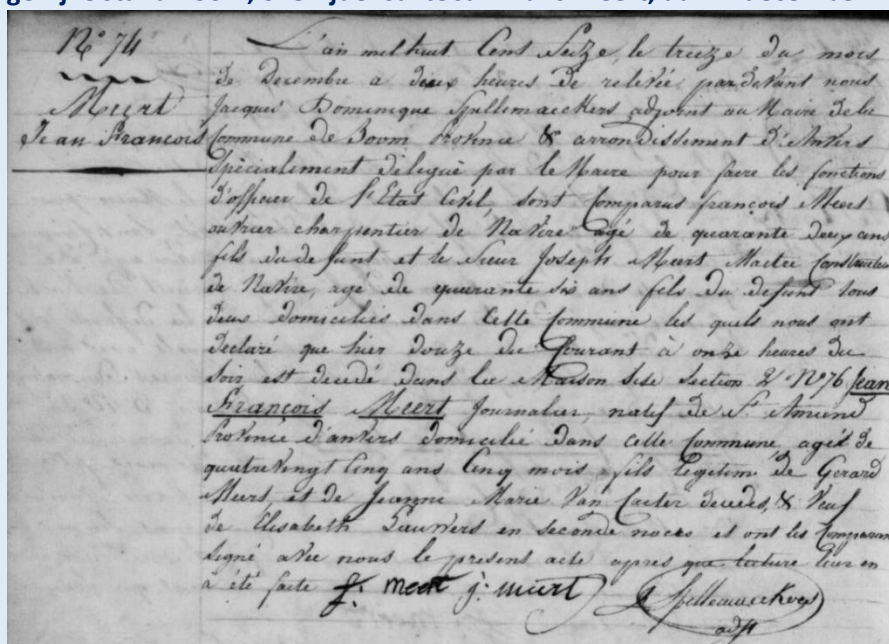 N° 74
Meert
Jean François
L'an mil huit Cent Seize, le treize du mois
de Decembre a deux heures de relevée pardevant nous
Jacques Dominique Spillemaeckers adjoint au Maire de la
Commune de Boom Province & arrondissement d'Anvers
Spécialement délegué par le Maire pour faire les fonctions
d'officier de l'Etat Civil, sont Comparus françois Meert
ouvrier charpentier de Navire agé de quarante deux ans
fils du defunt et le Sieur Joseph Meert Maitre Constructeur
de Navire, agé de quarante six ans fils du defunt tous
deux domiciliés dans Cette Commune les quels nous ont
Declaré que hier douze du Courant à onze heures du
Soir est decedé dans la Maison Sise Section 2 N° 76 Jean
François Meert Journalier, natif de St Amand
Province d'anvers domicilié dans cette Commune agé de
quatrevingt Cinq ans Cinq mois, fils legitim de Gerard
Meert, et de Jeanne Marie Van Caeter decedes, & Veuf
de Elisabeth Pauwers en seconde noces et ont les Comparans
Signé avec nous le present acte apres que lecture leur en
à été faite f: meert j: meert Spillemaeckers
adjt